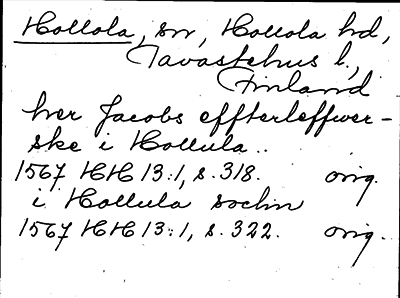 Hollola, sn, Hollola hd,
Tavastehus l.,
Finland
her Jacobs effterleffwer-
ske i Hollula..
1567 HH 13:1, s. 318. orig.
i Hollula sochn
1567 HH 13:1, s. 322. orig.